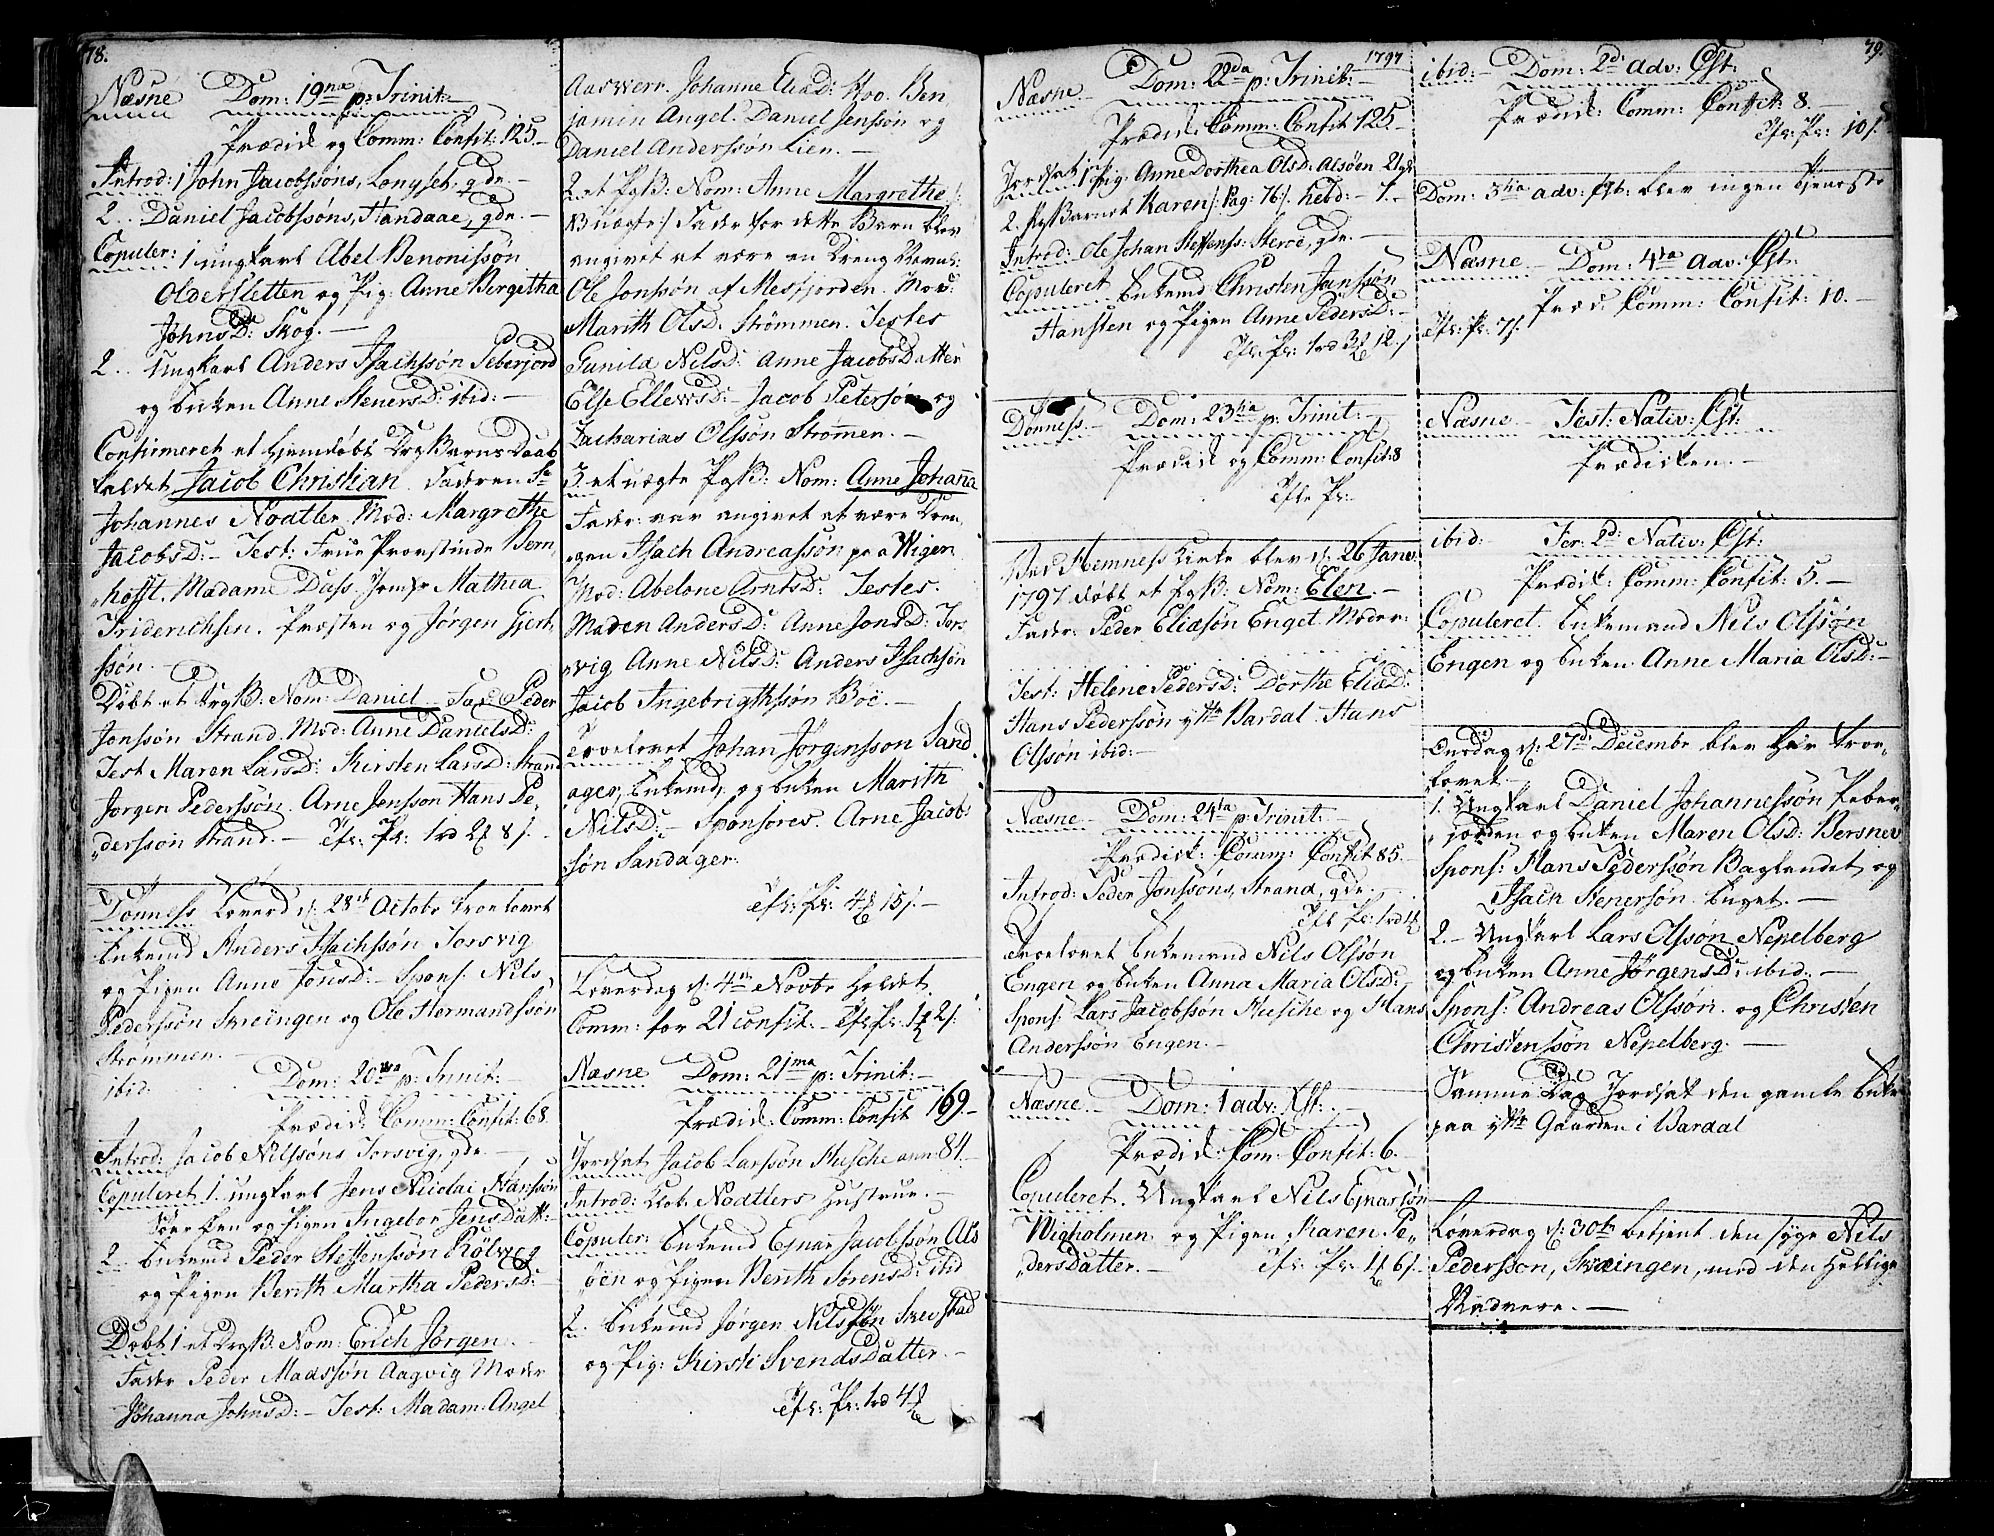 78.
Næsne Dom: 19na p: Trinit:
Prædik og Comm: Confit: 125.
Introd: 1 John Jacobssøns, Lonyset, gde.
2. Daniel Jacobssøns, Handaae, gde.
Copuler: 1 ungkarl Abel Benonissøn
Oldersletten og Pig: Anne Birgitha
JohnsD: Skog.
2. Ungkarl Anders Isachssøn Seberjord
og Enken Anne StenersD: ibid:
Confirmeret et hiemdøbt DrgBarns Daab
kaldet Jacob Christian Faderen Sr
Johannes Nodtler Mod: Margrethe
JacobsD: Test: Frue Provstinde Bern-
hofft. Madame Dass. Jomfr Mathia
Friderichsen. Præsten og Jørgen Gjert-
ssøn.
Døbt et DrgB: Nom: Daniel Fad: Peder
Jonssøn Strand. Mod: Anne DanielsD:
Test Maren LarsD: Kirsten LarsD: Strand
Jørgen Pederssøn. Arne Jensson Hans Pe-
dersson Strand. 8
Dönness Løverd d: 28de Octobr troelovet
Enkemd Anders Isachssøn Torsvig
og Pigen Anne JonsD: Spons: Nils
Pederssøn Skeingen og Ole Hermandssøn
Strømmen.
ibid: Dom: 20ma p: Trinit:
Prædik: Comm: Confit: 68.
Introd: Jacob Nilssøns Torsvig, gde.
Copuleret 1. ungkarl Jens Nicolai Hanssøn
og Pigen Ingebor JensDatt:
2. Enkemd Peder Steffenssøn Rölvog
og Pigen Berith Martha PedersD:
Døbt 1 et DrgB: Nom: Erich Jørgen
Fader Peder Madssøn Aagvig Moder
Johanna JohnsD: Test: Madam: Angel
Aasverr. Johanne EliaD: Hoo. Ben
jamin Angel. Daniel Jenssøn og
Daniel Anderssøn Lien.
2 et PigB: Nom: Anne Margrethe
uægte Fader for dette Barn blev
angivet at være en Dreng
Ole Jonssøn af Mesfjorden. Mod:
Marith OlsD: Strömmen. Testes
Gunild NilsD: Anne JacobsDatter
Else EllevsD: Jacob Petersøn og
Zacharias Olssön Strömmen.
3 et uægte PigB: Nom: Anne Johana
Fader: var angivet at være Dren-
gen Isach Andreassøn paa Wigen
Mod: Abelone ArntsD: Testes.
Maren AndersD: Anne JonsD: Tors
vig Anne NilsD: Anders Isachsøn
Jacob Ingebrigthssøn Böe.
Troelovet Johan Jörgensson Sand
ager, Enkemd, og Enken Marith
NilsD: Sponsores. Arne Jacob:
søn Sandager.
15
Løverdag d: 4de Novbr holdet
Comm: for 21 confit.
Næsne Dom: 21ma p: Trinit:
Prædik: Comm: Confit 169.
Jordsat Jacob Larssøn Husche ann: 84.
Introd: Nodtlers Hustrue.
Copuler: Enkemd Ejnar Jacobssøn Als
öen og Pigen Berith SörensD: ibid
2. Enkemd Jørgen Nilssøn
og Pig: Kirsti SvendsDatter.
1797
Næsne Dom: 22da p: Trinit:
Prædik: Comm: Confit 125
Jordsat 1 Pig: Anne Dorthea OlsD: Alsöen
2. PigBarnet Karen /: Pag: 76 :/ hebd: 7.
Introd: Ole Johan Steffenss: gde.
Copuleret Enkemd Christen Janssøn
Hansten og Pigen Anne PedersD:
12
Dönness Dom: 23tia p: Trinit:
Prædik og Comm: Confit: 8
Ved Hemness Kirke blev d: 26 Janv:
1797 døbt et PigB: Nom: Elen.
Fader: Peder Eliasön Enget Moder:
Test: Helene PedersD: Dorthe EliaD:
Hans Pederssøn ytte Bardal Hans
Olsson ibid:
Næsne Dom: 24ta p: Trinit:
Prædik: Comm: Confit 85.
Introd: Peder Jonssøns, Strand, gde.
Troelovet Enkemand Nils Olssøn
Engen og Enken Anna Maria OlsD:
Spons: Lars Jacobssøn Husche og Hans
Anderssøn Engen.
Næsne Dom: 1 adv: Xst:
Prædik: Com: Confit: 6.
Copuleret. Ungkarl Nils Ejnarsøn
Wigholmen og Pigen Karen Pe-
dersDatter.
79.
ibid: Dom: 2d adv: Xst:
Prædik: Comm: Confit: 8.
10
Dom: 3tia adv: blev ingen tjeneste
Næsne Dom: 4ta adv: Xst:
Præd: Comm: Confit: 10.
Næsne Fest: Nativ: Xst:
Prædiken.
ibid: Fer: 2d: Nativ: Xst:
Prædik: Comm: Confit: 5.
Copuleret Enkemand Nils Olssøn
Engen og Enken Anne Maria OlsD:
Onsdag d: 27de Decembr blev her troe-
lovet
1. Ungkarl Daniel Johannessøn Seber-
jorden og Enken Maren OlsD: Bersnev
Spons: Hans Pederssøn Baglandet og
Isach Stenersön
2. Ungkarl Lars Olssøn Nepelberg
og Enken Anne JörgensD: ibid.
Spons: Andreas Olssøn og Christen
Christenssøn Nepelberg.
Samme Dag Jordsat den gamle Enke
paa ytte Gaarden i Bardal
Løverdag d: 30te betjent den syge Nils
Pedersson, Skæingen, med den hellige
Nadvere.